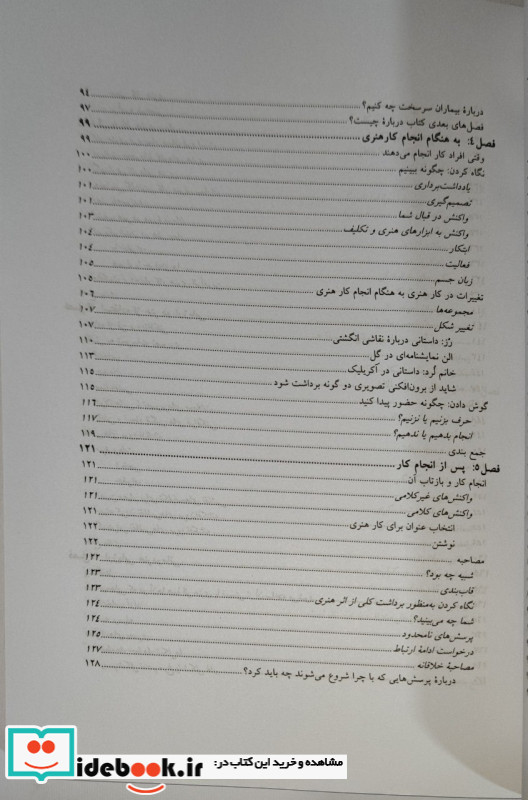 دربارهٔ بیماران سرسخت چه کنیم؟ ۹۴
فصل‌های بعدی کتاب دربارهٔ چیست؟ ۹۷
فصل ٤: به هنگام انجام کار هنری ۹۹
وقتی افراد کار انجام می‌دهند ۹۹
نگاه کردن: چگونه ببینیم ۱۰۰
یادداشت‌برداری ۱۰۰
تصمیم‌گیری ۱۰۱
واکنش در قبال شما ۱۰۱
واکنش به ابزارهای هنری و تکلیف ۱۰۳
ابتکار ۱۰۴
فعالیت ۱۰۴
زبان جسم ۱۰۵
تغییرات در کار هنری به هنگام انجام کار هنری ۱۰۵
مجموعه‌ها ۱۰۶
تغییر شکل ۱۰۷
رُز: داستانی دربارهٔ نقاشی انگشتی ۱۰۷
الن نمایشنامه‌ای در گل ۱۱۰
خانم لُرد: داستانی در آکریلیک ۱۱۳
شاید از برون‌افکنی تصویری دو گونه برداشت شود ۱۱۵
گوش دادن: چگونه حضور پیدا کنید ۱۱۵
حرف بزنیم یا نزنیم؟ ۱۱۶
انجام بدهیم یا ندهیم؟ ۱۱۷
جمع بندی ۱۱۹
فصل ٥: پس از انجام کار ۱۲۱
انجام کار و بازتاب آن ۱۲۱
واکنش‌های غیرکلامی ۱۲۱
واکنش‌های کلامی ۱۲۱
انتخاب عنوان برای کار هنری ۱۲۲
نوشتن ۱۲۲
مصاحبه ۱۲۲
شبیه چه بود؟ ۱۲۳
قاب‌بندی ۱۲۳
نگاه کردن به‌منظور برداشت کلی از اثر هنری ۱۲۴
شما چه می‌بینید؟ ۱۲۴
پرسش‌های نامحدود ۱۲۵
درخواست ادامهٔ ارتباط ۱۲۷
مصاحبهٔ خلاقانه ۱۲۸
دربارهٔ پرسش‌هایی که با چرا شروع می‌شوند چه باید کرد؟
مشاهده و خرید این کتاب در:
idebook.ir